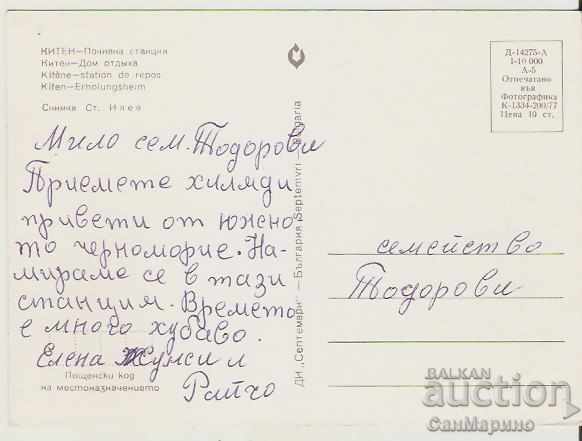 КИТЕН—Почивна станция
Китен—Дом отдыха
Kitène—station de repos
Kiten—Erholungsheim
Снимка Ст. Илев
Мило сем. Тодорови
Приемете хиляди
привети от южно
то черноморие. На-
мираме се в тази
станция. Времето
е много хубаво.
Елена
Ратчо
Пощенски код
на местоназначението
ДИ „Септември" — България Septemvri — Bulgaria
Д-14275-А
1-10 000
А-5
Отпечатано
във
Фотографика
К-1334-200/77
Цена 10 ст.
семейство
Тодорови
BALKAN
auction
СанМарино